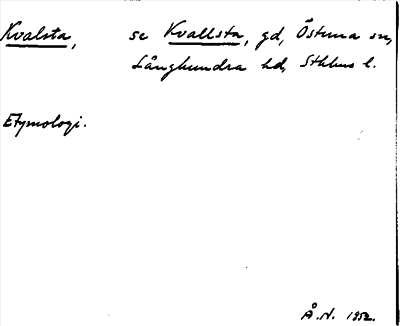 Kvalsta, se Kvallsta, gd, Östuna sn,
Långhundra hd, Sthlms l.
Etymologi.
Å.N. 1952.